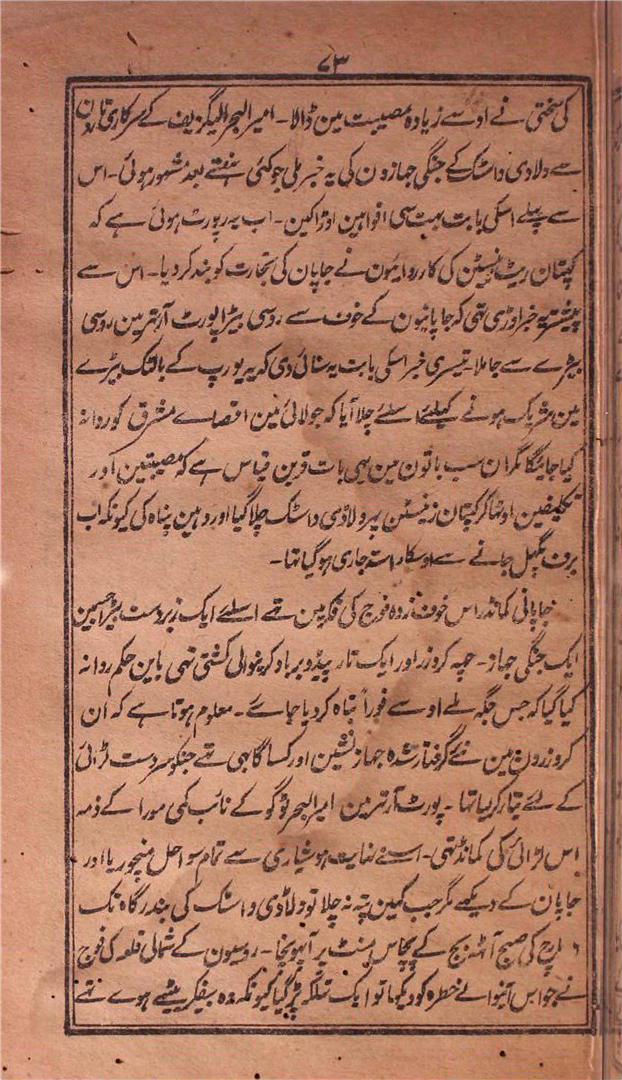 ۷۳
کی سختی نے اوسے زیادہ مصیبت مین ڈالا۔ امیر البحر الیگزیف کے سرکاری تارون
سے ولاڈی واسٹک کے جنگی جہازون کی یہ خبر ملی جو کئی ہفتے بعد مشہور ہوئی۔ اس
سے پہلے اسکی بابت بہت سی افواہین اوڑا کین۔ اب یہ رپورٹ ہوئی ہے کہ
کپتان ریٹزنسٹین کی کارروایئون نے جاپان کی تجارت کو بند کر دیا۔ اس سے
پیشتر یہ خبر اوڑی تہی کہ جاپانیون کے خوف سے روسی بیڑا پورٹ آرتھر مین روسی
بیڑے سے جا ملا۔ تیسری خبر اسکی بابت یہ سنائی دی کہ یہ یورپ کے بالٹک بیڑے
مین شریک ہونے کیلئے اسلئے چلا آیا کہ جولائی مین اقصاے مشرق کو روانہ
کیا جایئگا مگر ان سب باتون مین یہی بات قرین قیاس ہے کہ مصیبتین اور
تکلیفین اوٹھا کر کپتان زنیسٹن پہر ولاڈی واسٹک چلا گیا اور وہین پناہ لی کیونکہ اب
برف پگہل جانے سے اوسکا راستہ جاری ہو گیا تہا۔
جاپانی کمانڈر اس خوف زدہ فوج کی فکر مین تہے اسلئے ایک زبردست بیڑا جسمین
ایک جنگی جہاز۔ چہہ کروزر اور ایک تارپیڈو برباد کرینوالی کشتی تہی باین حکم روانہ
کیا گیا کہ جس جگہ ملے اوسے فوراً تباہ کر دیا جاے۔ معلوم ہوتا ہے کہ ان
کروزرون مین نئے گرفتار شدہ جہاز نشین اور کساگا بہی تہے جنکو سردست لڑائی
کے لئے تیار کر لیا تہا۔ پورٹ آرتھر مین امیر البحر ٹوگو کے نائب کمی مورا کے ذمہ
اس لڑائی کی کمانڈ تہی۔ اسنے نہایت ہوشیاری سے تمام سواحل منچوریا اور
جاپان کے دیکہے مگر جب کہین پتہ نہ چلا تو ولاڈی واسٹک کی بندرگاہ تک
مارچ کی صبح آٹھہ بج کے پچاس منٹ پر آپہونچا۔ روسیون کے شمالی قلعہ کی فوج
نے جو اس آنیوالے خطرہ کو دیکہا تو ایک تہلکہ پڑ گیا کیونکہ وہ بیفکر بیٹہے ہوے تہے